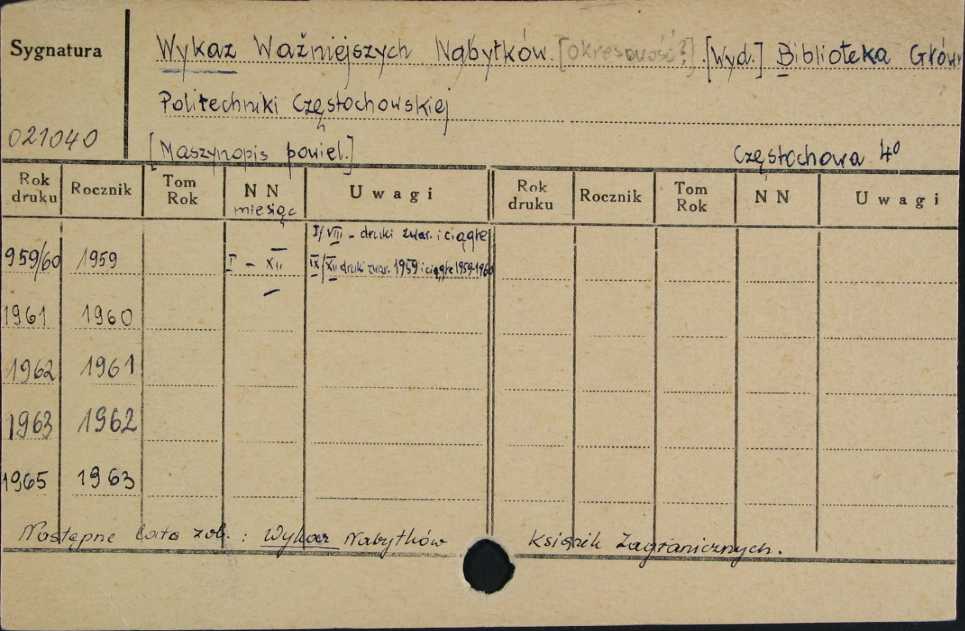 Sygnatura
Wykaz Ważniejszych Nabytków. [okresowość?]. [Wyd.] Biblioteka Głów
Politechniki Częstochowskiej
021040
[Maszynopis powiel.] Częstochowa 4°
Rok druku Rocznik Tom Rok NN miesiąc Uwagi Rok druku Rocznik Tom Rok NN Uwagi
I/VIII - druki zwar. i ciągłe
959/60 1959 I - XII IX/XII druki zwar. 1959 i ciągłe 1959-1960
1961 1960
1962 1961
1963 1962
1965 1963
Następne lata zob.: Wykaz Nabytków Książek Zagranicznych.